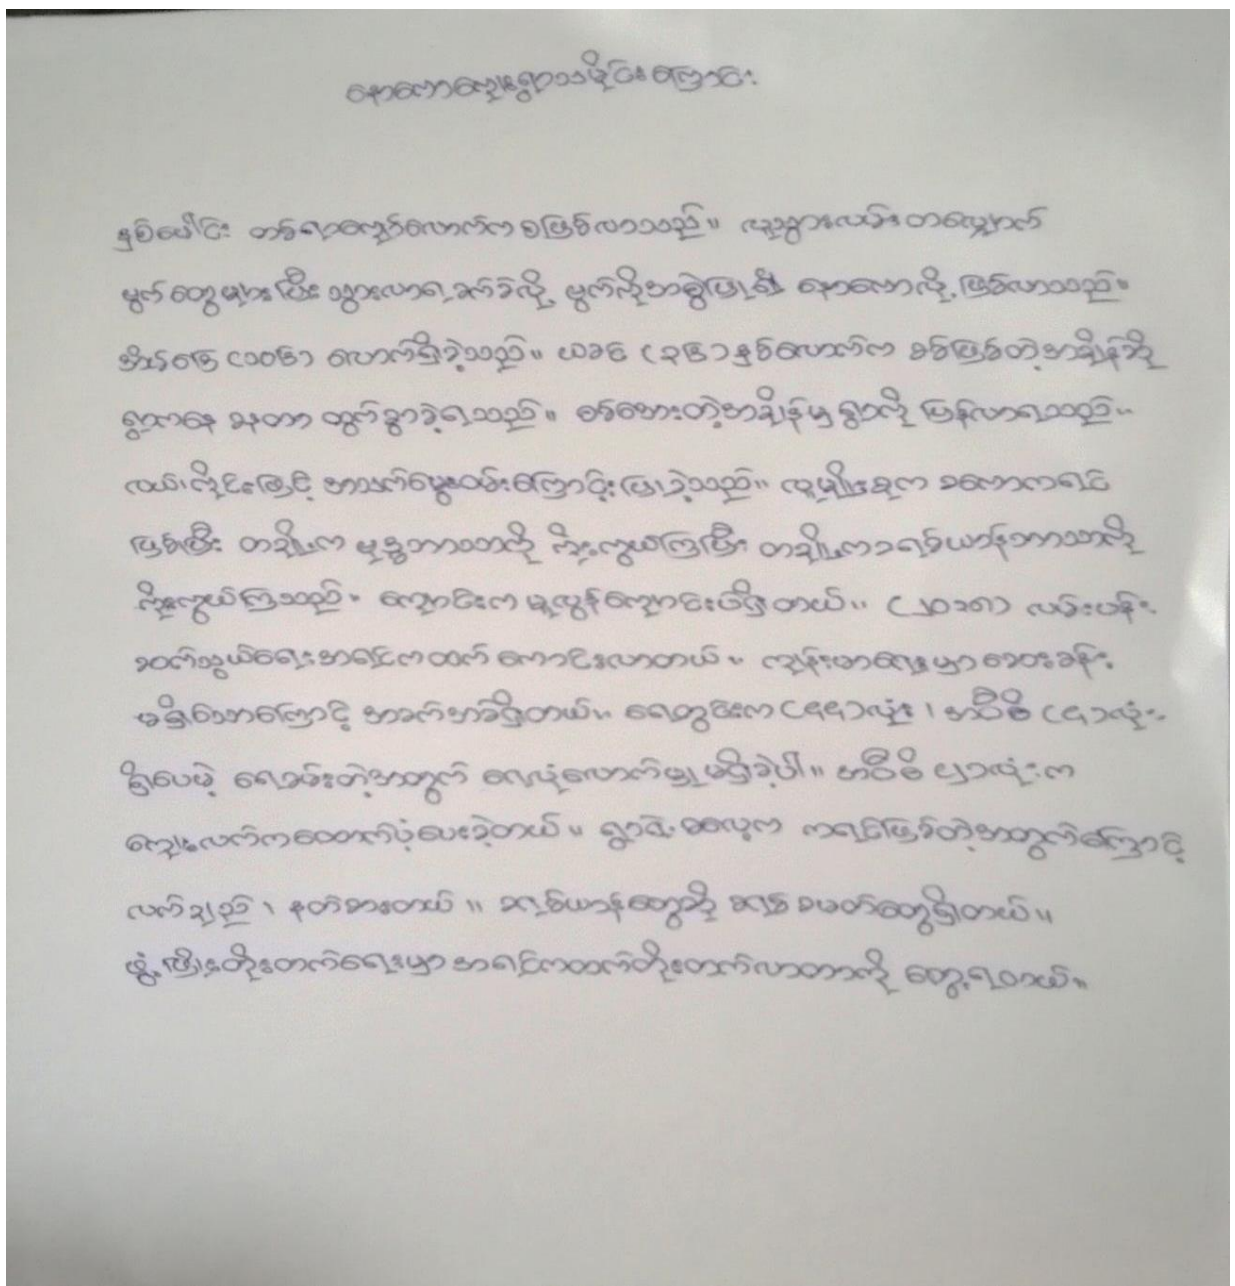 နောကောကျေးရွာသမိုင်းကြောင်း
နှစ်ပေါင်း တစ်ရာကျော်လောက်က စဖြစ်လာသည်။ လူသွားလမ်းတလျှောက်
မွက်တွေများပြီး သွားလာရခက်ခဲလို့ မွက်လိုအစွဲပြု၍ နောကောလို့ ဖြစ်လာသည်။
အိမ်ခြေ (၁၀၆) လောက်ရှိခဲ့သည်။ ယခင် (၃၆) နှစ်လောက်က စစ်ဖြစ်တဲ့အချိန်ဆို
ရွာကနေ ထွက်ခွာခဲ့ရသည်။ စစ်အေးတဲ့အချိန်မှ ရွာကို ပြန်လာရသည်။
လယ်၊ လိုင်းဖြင့် အသက်မွေးဝမ်းကြောင်းပြုခဲ့သည်။ လူမျိုးစုက စကောကရင်
ဖြစ်ပြီး တချို့က ဗုဒ္ဓဘာသာကို ကိုးကွယ်ကြပြီး တချို့ကခရစ်ယာန်ဘာသာကို
ကိုးကွယ်ကြသည်။ ကျောင်းက မူလွန်ကျောင်းပဲရှိတယ်။ လမ်းပန်း
ဆက်သွယ်ရေးအရင်ကထက် ကောင်းလာတယ်။ ကျန်းမာရေးမှာ ဆေးခန်း
မရှိသောကြောင့် အခက်အခဲရှိတယ်။ ရေတွင်းက (၄၄)လုံး၊ အဝီစိ (၄)လုံး
ရှိပေမဲ့ ရေခမ်းတဲ့အတွက် ရေလုံလောက်မှု မရှိခဲ့ပါ။ အဝီစိ ၂လုံးက
ကျေးလက်ကထောက်ပံ့ပေးခဲ့တယ်။ ရွာရဲ့ဓလေ့က ကရင်ဖြစ်တဲ့အတွက်ကြောင့်
လက်ချည်၊ နတ်စားတယ်။ ခရစ်ယာန်တွေဆို ခရစ်စမတ်တွေရှိတယ်။
ဖွံ့ဖြိုးတိုးတက်ရေးမှာ အရင်ကထက်တိုးတက်လာတာကို တွေ့ရတယ်။